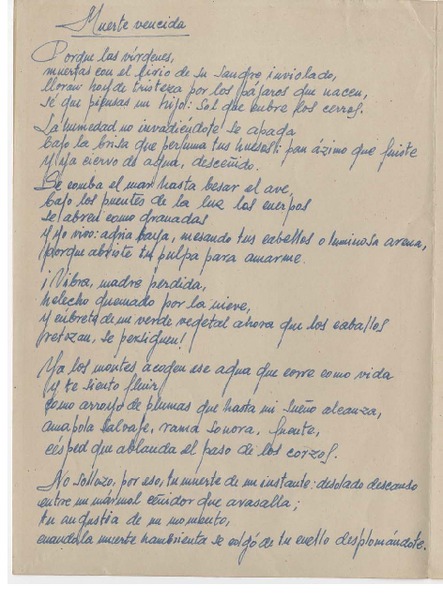 Muerte vencida
Porque las vírgenes,
muertas con el lirio de su sangre inviolado,
lloran hoy de tristeza por los pájaros que nacen,
sé que piensas un hijo: Sol que cubre los cerros.
La humedad no invadiéndote se apaga
bajo la brisa que perfuma tus huesos: pan ázimo que fuiste
y ya ciervo de agua, desceñido.
Se comba el mar hasta besar el ave,
bajo los puentes de la luz los cuerpos
se abren como granadas
y yo vivo: agria baya, mesando tus cabellos o luminosa arena,
porque abriste tu pulpa para amarme.
¡Vibra, madre perdida,
helecho quemado por la nieve,
y cúbrete de un verde vegetal ahora que los caballos
retozan, se persiguen!
Ya los montes acogen ese agua que corre como vida
y te siento fluir
como arroyo de plumas que hasta mi sueño alcanza,
amapola salvaje, rama sonora, fuente,
césped que ablanda el paso de los corzos.
No sollozo, por eso, tu muerte de un instante: desolado descanso
entre un mármol ceñidor que avasalla;
tu angustia de un momento,
cuando la muerte hambrienta se colgó de tu cuello desplomándote.